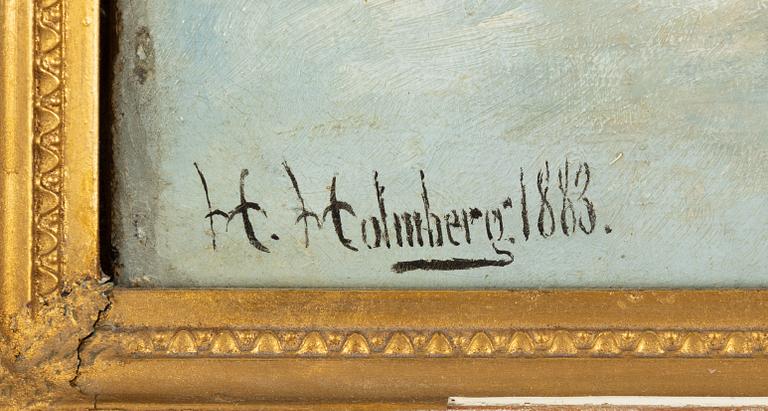 H. Holmberg. 1883.